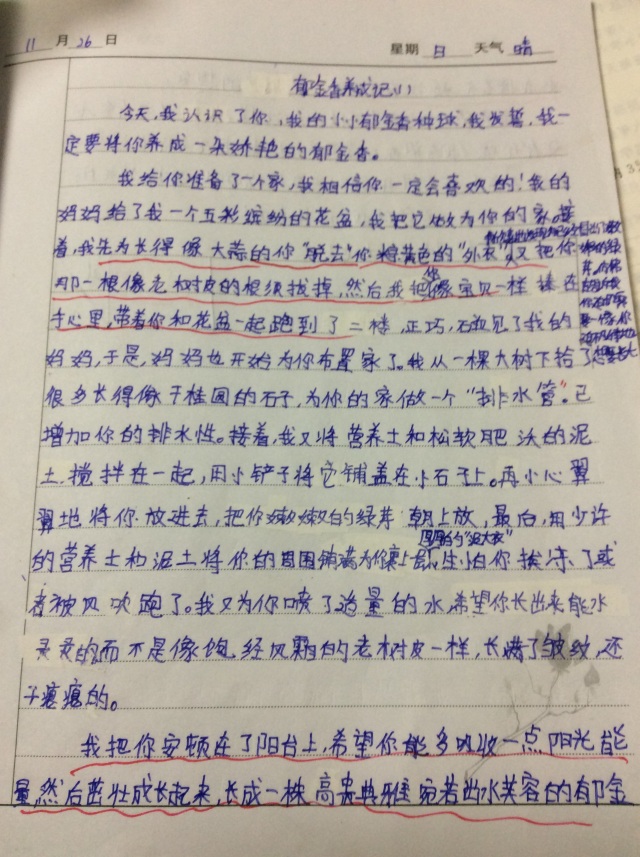 11月26日 星期日 天气晴
郁金香养成记(1)
今天,我认识了你,我的小小郁金香种球,我发誓,我一
定要将你养成一朵娇艳的郁金香。
我给你准备了一个家,我相信你一定会喜欢的!我的
妈妈给了我一个五彩缤纷的花盆,我把它做为你的家。接
着,我先为长得像大蒜的你"脱去"你棕黄色的"外衣",又把你
那一根像老树皮的根须拔掉,然后我把你像宝贝一样捧在
手心里,带着你和花盆一起跑到了二楼,正巧,碰见了我的
妈妈,于是,妈妈也开始为你布置家了。我从一棵大树下拾了
很多长得像干桂圆的石子,为你的家做一个"排水管"。已
增加你的排水性。接着,我又将营养土和松软肥沃的泥
土,搅拌在一起,用小铲子将它铺盖在小石子上。再小心翼
翼地将你放进去,把你嫩嫩的绿芽朝上放,最后,用少许
的营养土和泥土将你的周围铺满为你裹上
"泥大衣"
生怕你挨冻了或
者被风吹跑了。我又为你喷了适量的水,希望你长出来能水
灵灵的而不是像饱经风霜的老树皮一样,长满了皱纹,还
干瘪瘪的。
我把你安顿在了阳台上,希望你能多吸收一点阳光能
量,然后茁壮成长起来,长成一株高贵典雅宛若出水芙容的郁金